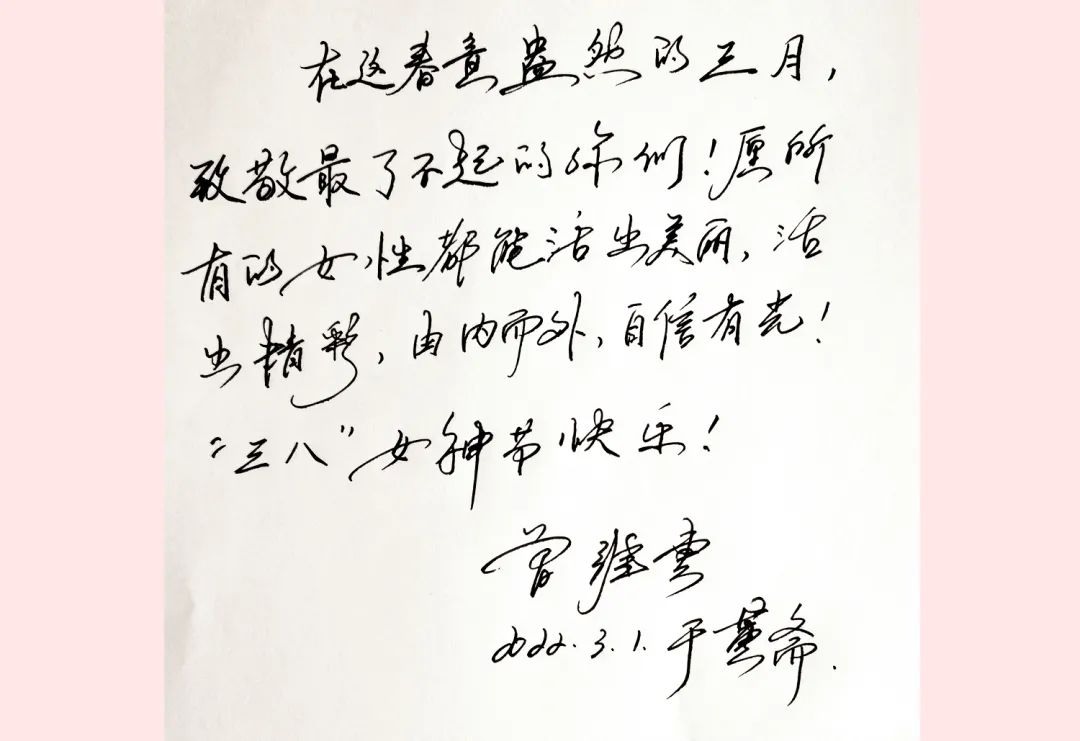 在这春意盎然的三月，
致敬最了不起的你们！愿所
有的女性都能活出美丽，活
出精彩，由内而外，自信有光！
“三八”女神节快乐！
曾
2022.3.1.于